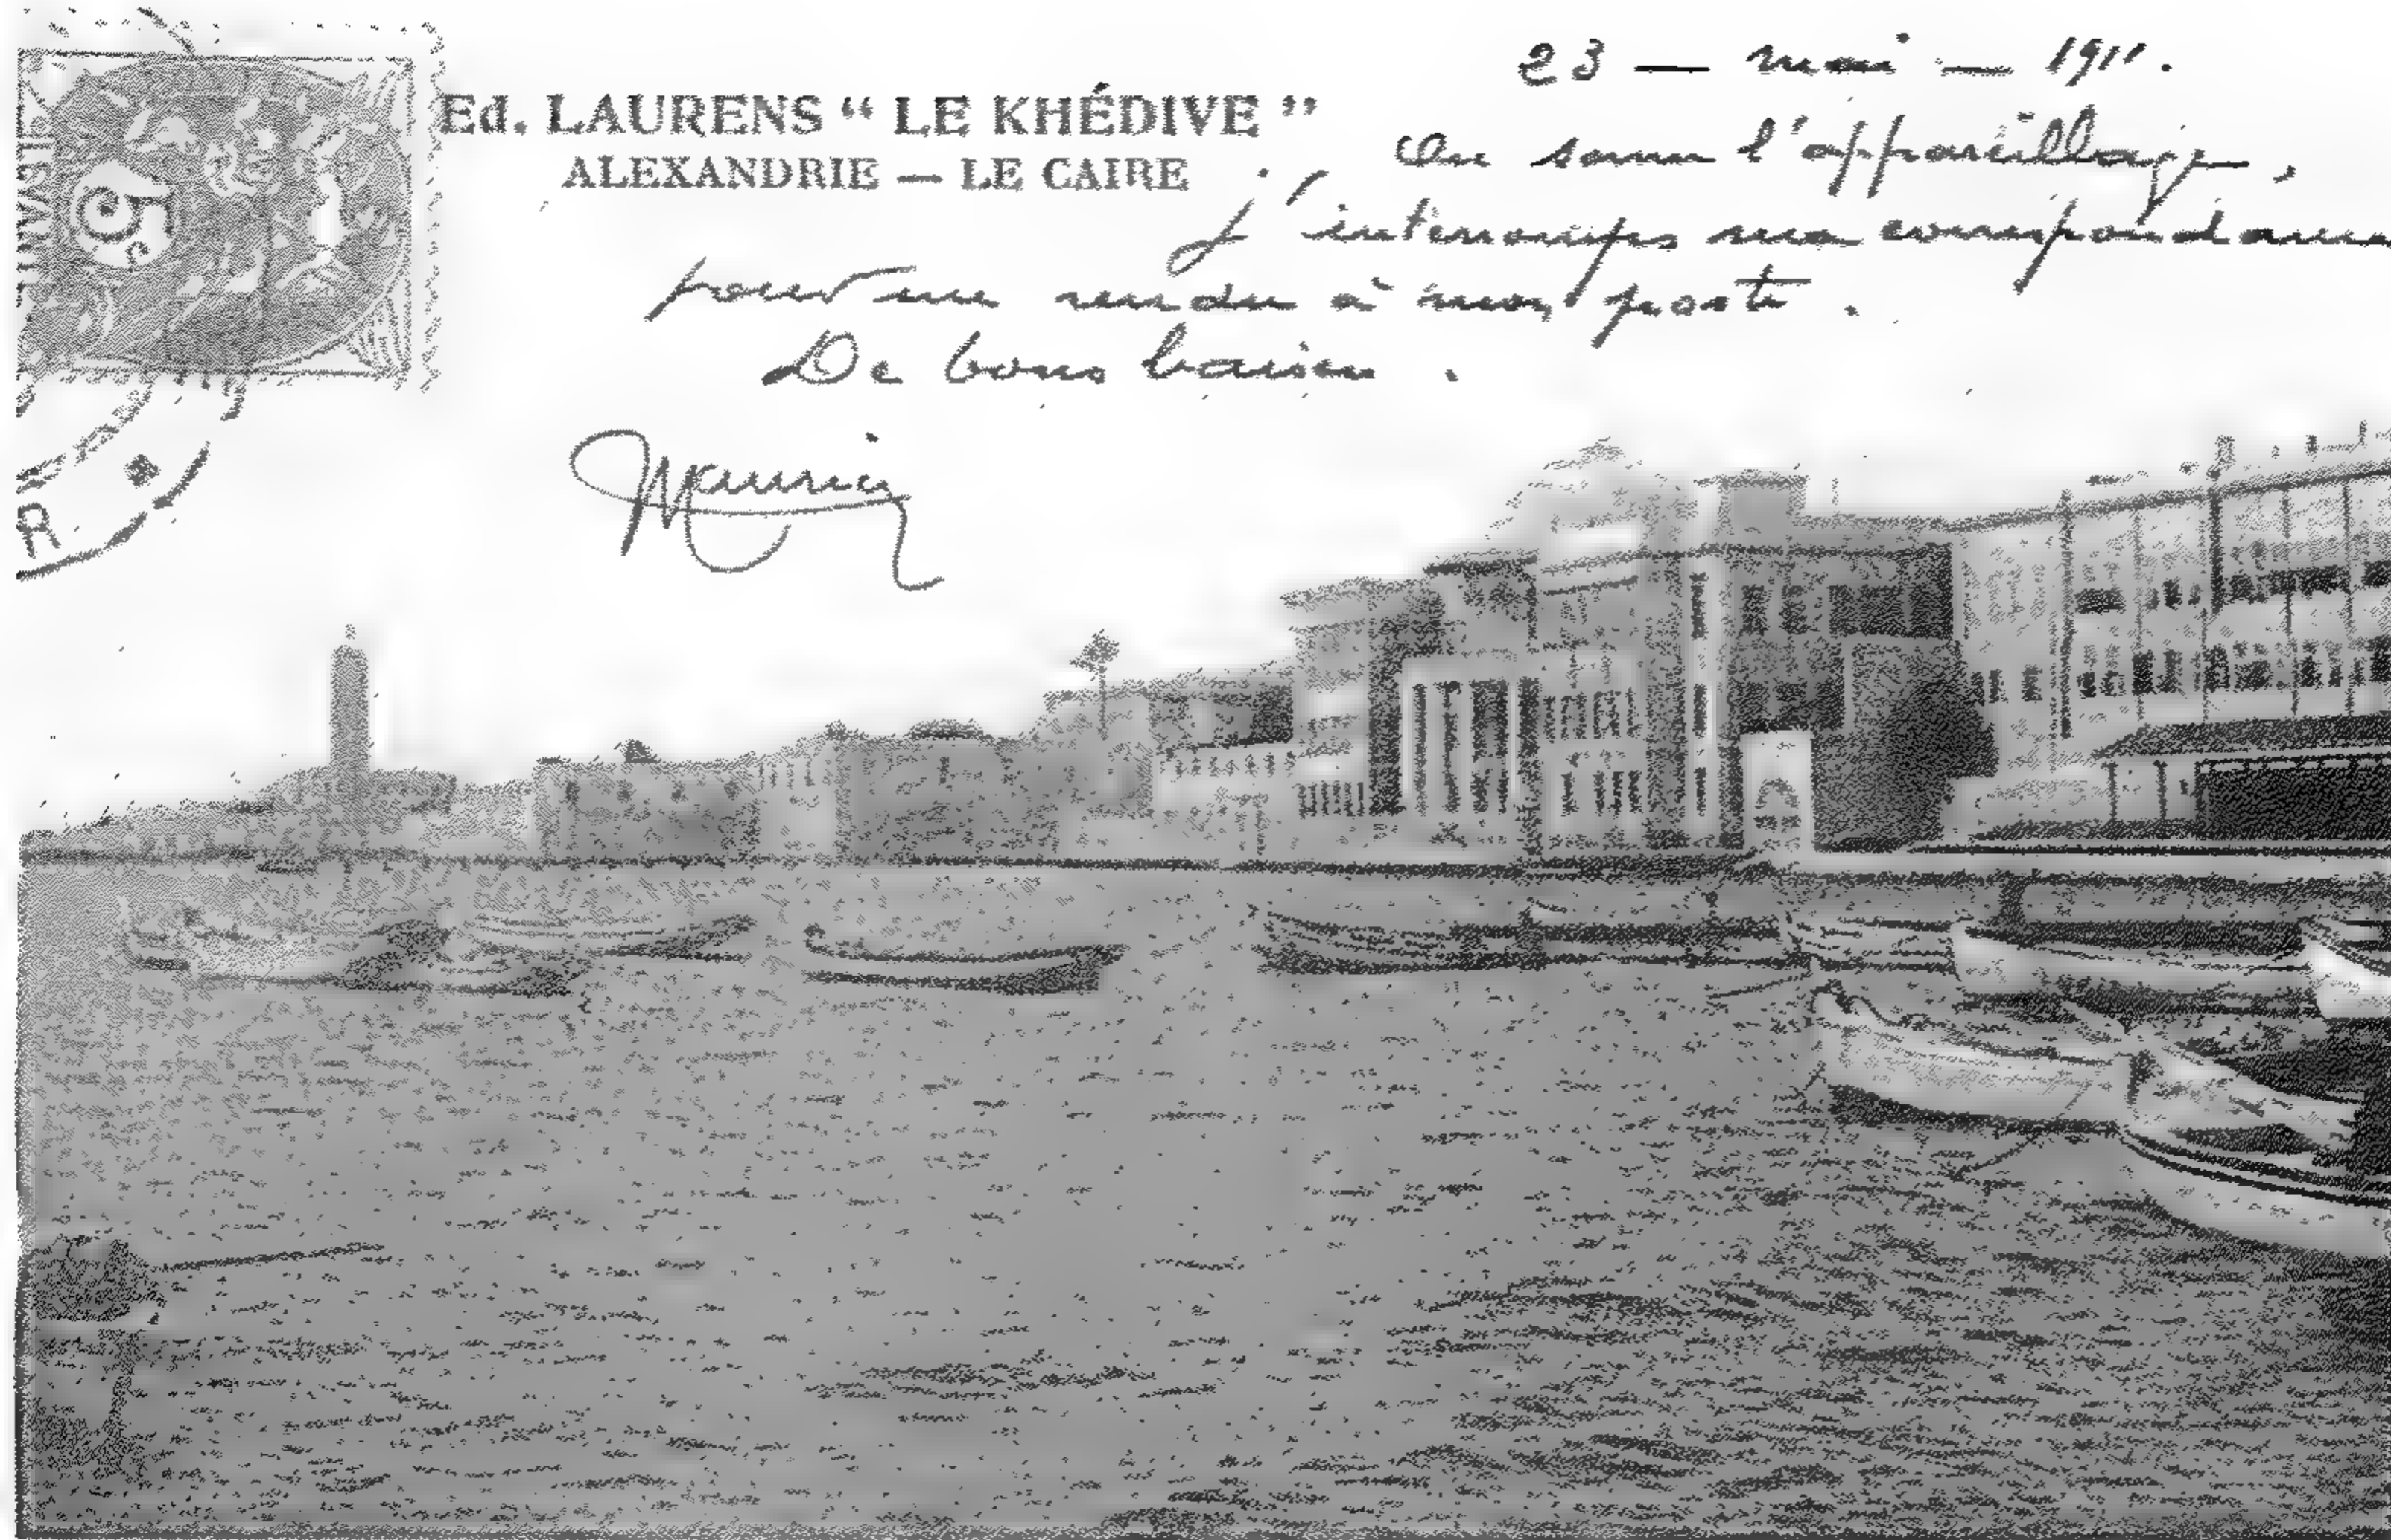 23 — mai — 1911.
Ed. LAURENS “ LE KHÉDIVE ”
ALEXANDRIE — LE CAIRE
On sonne l'appareillage,
j'interromps ma correspondance
pour me rendre à mon poste.
De bons baisers.
Maurice
5c
R.